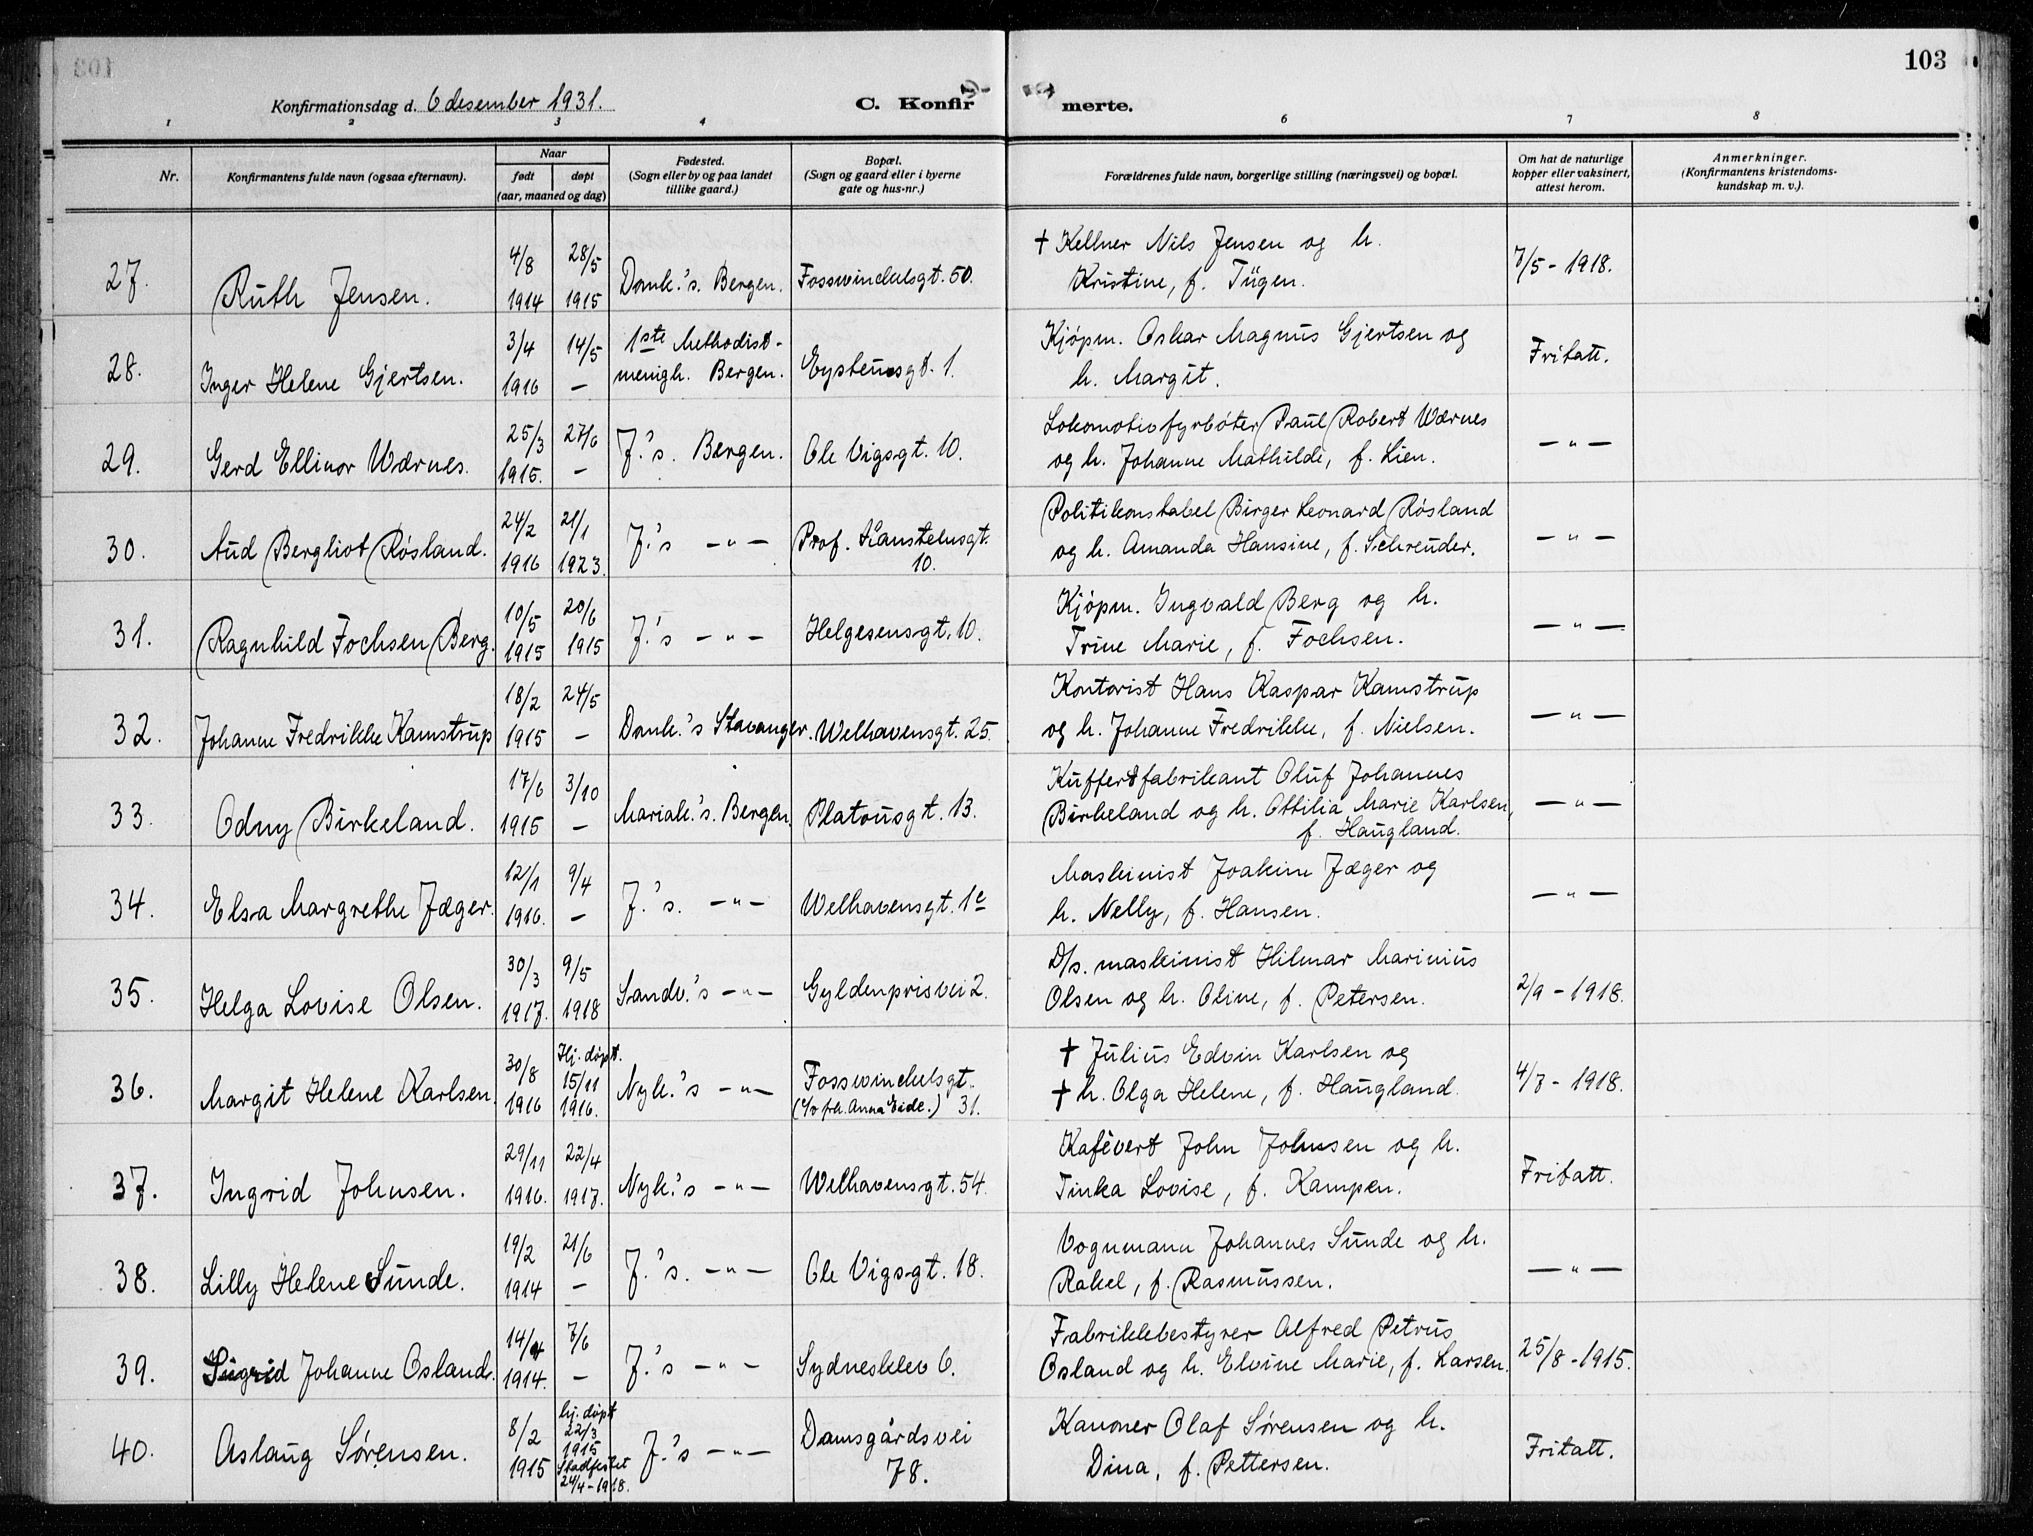 103
Konfirmationsdag d. 6 desember 1931.
C. Konfirmerte.
1 2 3 4 6 7 8
Nr.
Konfirmantens fulde navn (ogsaa efternavn).
Naar
født
døpt
(aar, maaned og dag)
Fødested.
(Sogn eller by og paa landet
tillike gaard.)
Bopæl.
(Sogn og gaard eller i byerne
gate og hus-nr.)
Forældrenes fulde navn, borgerlige stilling (næringsvei) og bopæl.
Om hat de naturlige
kopper eller vaksinert,
attest herom.
Anmerkninger.
(Konfirmantens kristendoms-
kundskap m. v.).
27. Ruth Jensen. 4/8 1914 28/5 1915 Domk.'s. Bergen. Fosswinckelsgt. 50.
† Kellner Nils Jensen og h.
Kristine, f. Tügen.
7/5 - 1918.
28. Inger Helene Gjertsen. 3/4 1916 14/5 —
1ste Methodist-
menigh. Bergen.
Eysteinsgt. 1.
Kjøpm. Oskar Magnus Gjertsen og
h. Margit.
Fritatt.
29. Gerd Ellinor Wærnes. 25/3 1915. 27/6 — J.'s. Bergen. Ole Vigsgt. 10.
Lokomotivfyrbøter Paul Robert Wærnes
og h. Johanne Mathilde, f. Lien.
— " —
30. Aud Bergliot Røsland. 24/2 1916 21/1 1923. J.'s — " —
Prof. Hansteensgt.
10.
Politikonstabel Birger Leonard Røsland
og h. Amanda Hansine, f. Schreuder.
— " —
31. Ragnhild Fochsen Berg. 10/5 1915 20/6 1915 J.'s — " — Helgesensgt. 10.
Kjøpm. Ingvald Berg og h.
Trine Marie, f. Fochsen.
— " —
32. Johanne Fredrikke Kamstrup 18/2 1915 24/5 — Domk.'s Stavanger. Welhavensgt. 25.
Kontorist Hans Kaspar Kamstrup
og h. Johanne Fredrikke, f. Nielsen.
— " —
33. Odny Birkeland. 17/6 1915 3/10 — Mariak.'s. Bergen. Platousgt. 13.
Kuffertfabrikant Oluf Johannes
Birkeland og h. Ottilia Marie Karlsen,
f. Haugland.
— " —
34. Elsa Margrethe Jæger. 12/1 1916. 9/4 — J.'s. — " — Welhavensgt. 1c
Maskinist Joakim Jæger og
h. Nelly, f. Hansen.
— " —
35. Helga Lovise Olsen. 30/3 1917. 9/5 1918 Sandv.'s — " — Gyldenprisvei 2.
D/s. maskinist Hilmar Marinius
Olsen og h. Oline, f. Petersen.
2/9 - 1918.
36. Margit Helene Karlsen. 30/8 1916 Hj. døpt. 15/11 1916. Nyk.'s — " —
Fosswinckelsgt.
(c/o frk. Anna Eide.) 31.
† Julius Edvin Karlsen og
† h. Olga Helene, f. Haugland.
4/7 - 1918.
37. Ingrid Johnsen. 29/11 1916. 22/4 1917. Nyk.'s — " — Welhavensgt. 54.
Kafévert John Johnsen og h.
Tinka Lovise, f. Kampen.
Fritatt.
38. Lilly Helene Sunde. 19/2 1914 21/6 — J.'s. — " — Ole Vigsgt. 18.
Vognmann Johannes Sunde og h.
Rakel, f. Rasmussen.
— " —
39. Sigrid Johanne Osland. 14/4 1914. 7/6 — J.'s — " — Sydneskleiv 6.
Fabrikkbestyrer Alfred Petrus
Osland og h. Elvine Marie, f. Larsen.
25/8 - 1915.
40. Aslaug Sørensen. 8/2 1915
hj. døpt
22/3
1915
Stadfestet
24/4 - 1918.
J.'s — " —
Damsgårdsvei
78.
Kanoner Olaf Sørensen og h.
Dina, f. Pettersen.
Fritatt.